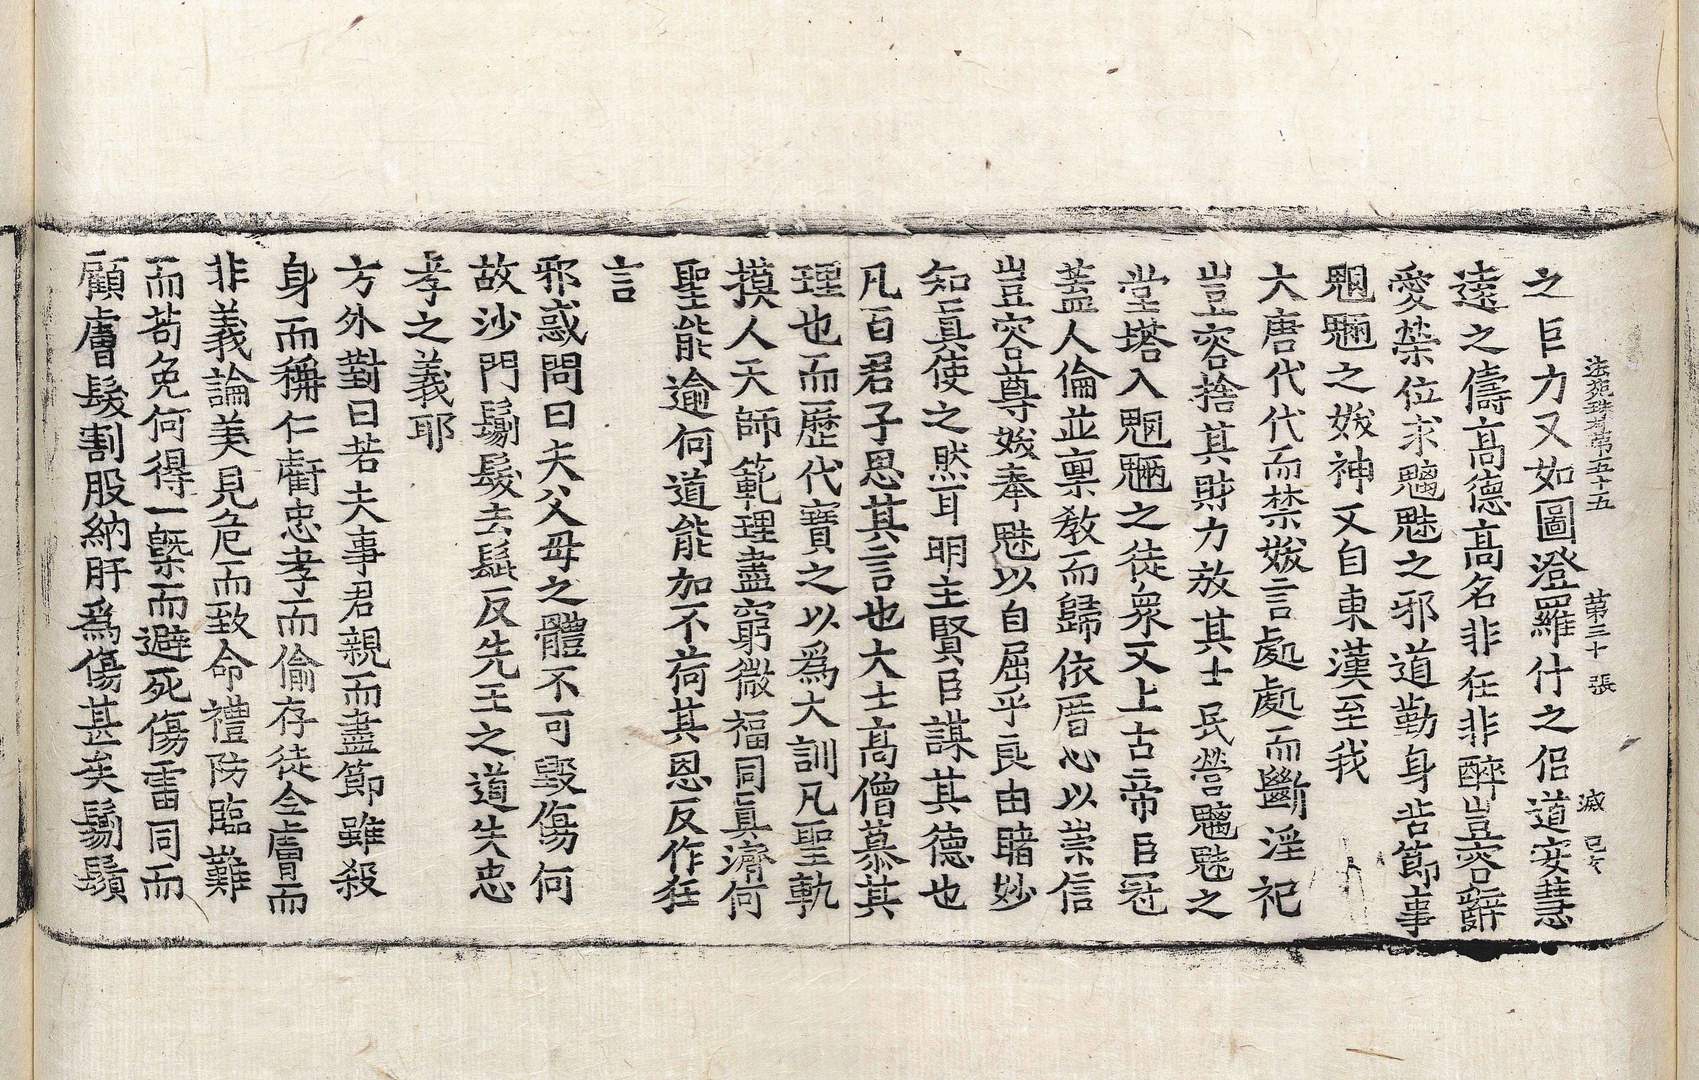 法苑珠林第五十五　第三十張　減
之臣力又如圖澄羅什之侶道安慧
遠之儔高德高名非狂非醉豈容辭
愛榮位求魑魅之邪道勤身苦節事
魍魎之妖神又自東漢至我
大唐代代而禁妖言處處而斷淫祀
豈容捨其財力放其士民營魑魅之
堂塔入魍魎之徒衆又上古帝臣冠
蓋人倫並稟教而歸依厝心以崇信
豈容尊妖奉魅以自屈乎良由睹妙
知真使之然耳明主賢臣謀其德也
凡百君子恩其言也大士高僧慕其
理也而歷代寶之以爲大訓凡聖軌
摸人天師範理盡窮微福同真濟何
聖能逾何道能加不荷其恩反作狂
言
邪惑問曰夫父母之體不可毀傷何
故沙門鬄髮去鬚反先王之道失忠
孝之義耶
方外對曰若夫事君親而盡節雖殺
身而稱仁虧忠孝而偷存徒全膚而
非義論美見危而致命禮防臨難
而苟免何得一槩而避死傷雷同而
顧膚髮割股納肝爲傷甚矣鬄鬚